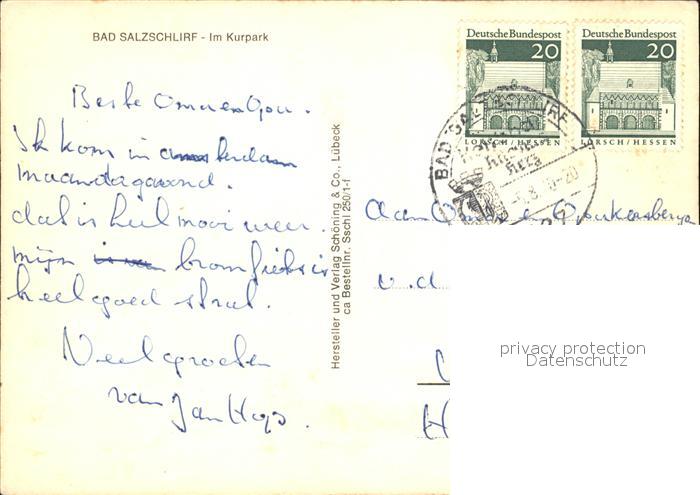 BAD SALZSCHLIRF - Im Kurpark
Beste Oma en Opa.
Ik kom in
maandagavond.
dat is heel mooi weer.
mijn bromfiets is
heel goed
Veel groeten
van Jan
Hersteller und Verlag Schöning & Co., Lübeck
ca Bestellnr. Sschl 250/1-f
Deutsche Bundespost
20
LORSCH/HESSEN
Deutsche Bundespost
20
LORSCH/HESSEN
BAD SALZSCHLIRF
Aan Oma en Opa
v. d
H
privacy protection
Datenschutz